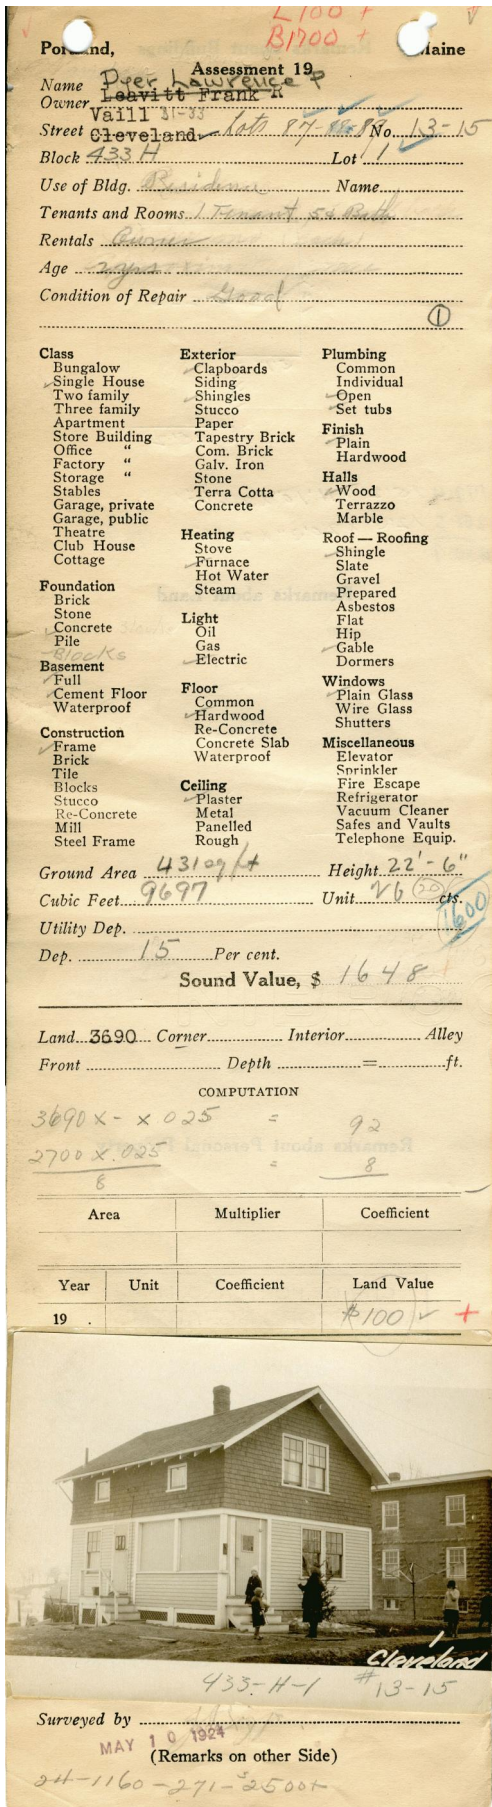 L100 +
B1700 +
Portland, Maine
Assessment 19
Dyer Lawrence P
Name Leavitt Frank R
Owner
Vaill 31-33
Street Cleveland Lots 87-88-89 No. 13-15
Block 433 H Lot 1
Use of Bldg. Residence Name
Tenants and Rooms 1 Tenant 5 & Bath
Rentals Owner
Age 2 yrs
Condition of Repair Good
1
Class
Bungalow
Single House
Two family
Three family
Apartment
Store Building
Office "
Factory "
Storage "
Stables
Garage, private
Garage, public
Theatre
Club House
Cottage
Foundation
Brick
Stone
Concrete
Pile
Blocks
Basement
Full
Cement Floor
Waterproof
Construction
Frame
Brick
Tile
Blocks
Stucco
Re-Concrete
Mill
Steel Frame
Exterior
Clapboards
Siding
Shingles
Stucco
Paper
Tapestry Brick
Com. Brick
Galv. Iron
Stone
Terra Cotta
Concrete
Heating
Stove
Furnace
Hot Water
Steam
Light
Oil
Gas
Electric
Floor
Common
Hardwood
Re-Concrete
Concrete Slab
Waterproof
Ceiling
Plaster
Metal
Panelled
Rough
Plumbing
Common
Individual
Open
Set tubs
Finish
Plain
Hardwood
Halls
Wood
Terrazzo
Marble
Roof — Roofing
Shingle
Slate
Gravel
Prepared
Asbestos
Flat
Hip
Gable
Dormers
Windows
Plain Glass
Wire Glass
Shutters
Miscellaneous
Elevator
Sprinkler
Fire Escape
Refrigerator
Vacuum Cleaner
Safes and Vaults
Telephone Equip.
Ground Area 431 sq ft Height 22' - 6"
Cubic Feet 9697 Unit 26 (20) cts.
1600
Utility Dep.
Dep. 15 Per cent.
Sound Value, $ 1648
Land 3690 Corner Interior Alley
Front Depth = ft.
COMPUTATION
3690 x - x 025 = 92
2700 x .025 = 8
8
Area Multiplier Coefficient
Year Unit Coefficient Land Value
19 . $100 +
1
Cleveland
433-H-1 # 13-15
Surveyed by
MAY 10 1924
(Remarks on other Side)
24-1160-271-$2500+